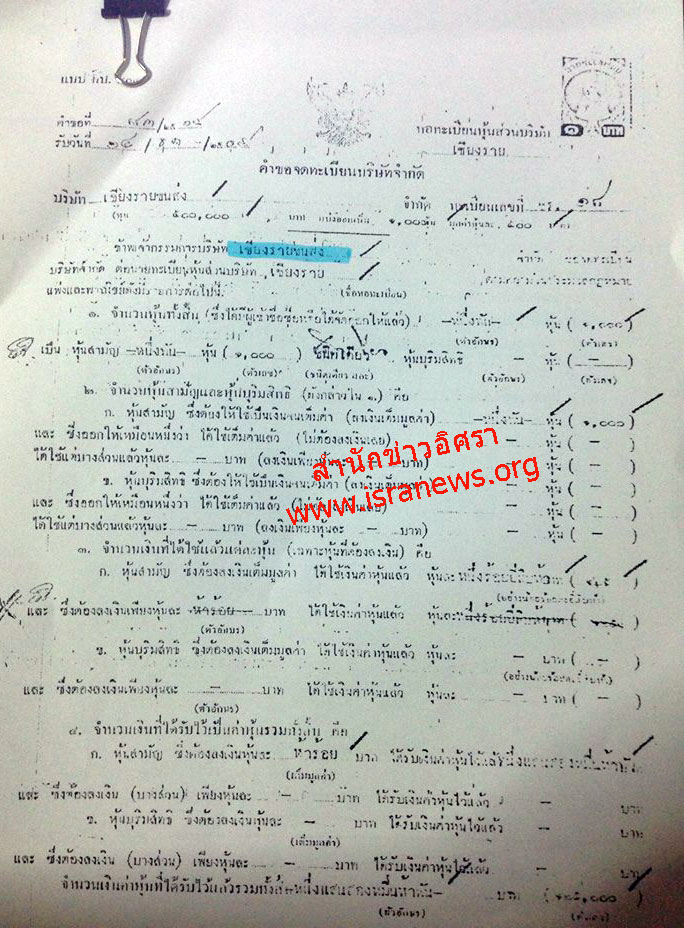 แบบ
คำขอที่
รับวันที่
หอทะเบียนหุ้นส่วนบริษัท
เชียงราย
คำขอจดทะเบียนบริษัทจำกัด
บริษัท เชียงรายขนส่ง จำกัด ทะเบียนเลขที่ ๑๘
ทุน ๕๐๐,๐๐๐ บาท แบ่งออกเป็น ๑,๐๐๐ หุ้น มูลค่าหุ้นละ ๕๐๐ บาท
ข้าพเจ้ากรรมการบริษัท เชียงรายขนส่ง จำกัด
บริษัทจำกัด ต่อนายทะเบียนหุ้นส่วนบริษัท เชียงราย
แพ่งและพาณิชย์ดังมีรายการต่อไปนี้ (ชื่อหอทะเบียน)
๑. จำนวนหุ้นทั้งสิ้น (ซึ่งได้มีผู้เข้าชื่อซื้อหรือได้จัดออกให้แล้ว) -หนึ่งพัน- หุ้น (๑,๐๐๐)
(ตัวอักษร) (ตัวเลข)
เป็น หุ้นสามัญ -หนึ่งพัน- หุ้น (๑,๐๐๐) ชนิดเดียว หุ้นบุริมสิทธิ – หุ้น ( – )
(ตัวอักษร) (ตัวเลข) (ตัวอักษร) (ตัวเลข)
๒. จำนวนหุ้นสามัญและหุ้นบุริมสิทธิ (ดังกล่าวใน ๑.) คือ
ก. หุ้นสามัญ ซึ่งต้องให้ใช้เป็นเงินจนเต็มค่า (ลงเงินเต็มมูลค่า) -หนึ่งพัน- หุ้น (๑,๐๐๐)
และ ซึ่งออกให้เหมือนหนึ่งว่า ได้ใช้เต็มค่าแล้ว (ไม่ต้องลงเงินเลย) – หุ้น ( – )
ได้ใช้แต่บางส่วนแล้วหุ้นละ – บาท (ลงเงินเพียงหุ้นละ – บาท) – หุ้น ( – )
สำนักข่าวอิศรา
www.isranews.org
ข. หุ้นบุริมสิทธิ ซึ่งต้องให้ใช้เป็นเงินจนเต็มค่า (ลงเงินเต็มมูลค่า) – หุ้น ( – )
และ ซึ่งออกให้เหมือนหนึ่งว่า ได้ใช้เต็มค่าแล้ว (ไม่ต้องลงเงินเลย) – หุ้น ( – )
ได้ใช้แต่บางส่วนแล้วหุ้นละ – บาท (ลงเงินเพียงหุ้นละ – บาท) – หุ้น ( – )
๓. จำนวนเงินที่ได้ใช้แล้วแต่ละหุ้น (เฉพาะหุ้นที่ต้องลงเงิน) คือ
ก. หุ้นสามัญ ซึ่งต้องลงเงินเต็มมูลค่า ได้ใช้เงินค่าหุ้นแล้ว หุ้นละ
และ ซึ่งต้องลงเงินเพียงหุ้นละ -ห้าร้อย- บาท ได้ใช้เงินค่าหุ้นแล้ว หุ้นละ
(ตัวอักษร)
ข. หุ้นบุริมสิทธิ ซึ่งต้องลงเงินเต็มมูลค่า ได้ใช้เงินค่าหุ้นแล้ว หุ้นละ – บาท ( – )
และ ซึ่งต้องลงเงินเพียงหุ้นละ – บาท ได้ใช้เงินค่าหุ้นแล้ว หุ้นละ – บาท ( – )
(ตัวอักษร)
๔. จำนวนเงินที่ได้รับไว้เป็นค่าหุ้นรวมทั้งสิ้น คือ
ก. หุ้นสามัญ ซึ่งต้องลงเงินหุ้นละ ห้าร้อย บาท ได้รับเงินค่าหุ้นไว้แล้ว
(เต็มมูลค่า)
และ ซึ่งต้องลงเงิน (บางส่วน) เพียงหุ้นละ – บาท ได้รับเงินค่าหุ้นไว้แล้ว – บาท
ข. หุ้นบุริมสิทธิ ซึ่งต้องลงเงินหุ้นละ – บาท ได้รับเงินค่าหุ้นไว้แล้ว – บาท
(เต็มมูลค่า)
และ ซึ่งต้องลงเงิน (บางส่วน) เพียงหุ้นละ – บาท ได้รับเงินค่าหุ้นไว้แล้ว – บาท
จำนวนเงินค่าหุ้นที่ได้รับไว้แล้วรวมทั้งสิ้น -หนึ่งแสนสองหมื่นห้าพัน- บาท (๑๒๕,๐๐๐)
(ตัวอักษร) (ตัวเลข)